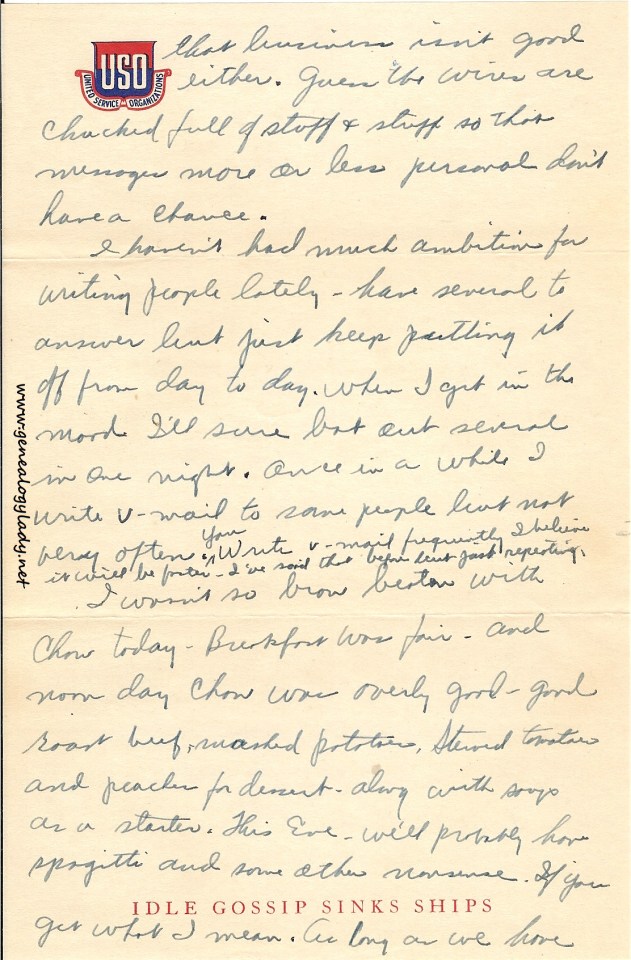 USO
UNITED SERVICE ORGANIZATIONS
that business isn't good
either. Guess the wires are
chucked full of stuff & stuff so that
messages more or less personal don't
have a chance.
I haven't had much ambition for
writing people lately - have several to
answer but just keep putting it
off from day to day. When I get in the
mood I'll sure bat out several
in one night. Once in a while I
write V-mail to some people but not
very often. You Write V-mail frequently I believe
it will be faster - I've said that before but just repeating.
I wasn't so brow beaten with
Chow today - Breakfast was fair - and
noon day Chow was overly good - good
roast beef, mashed potatoes, Stewed tomatoes
and peaches for dessert - along with soup
as a starter. This Eve - we'll probably have
spagitti and some other nonsense. If you
IDLE GOSSIP SINKS SHIPS
get what I mean. As long as we have
www.genealogylady.net